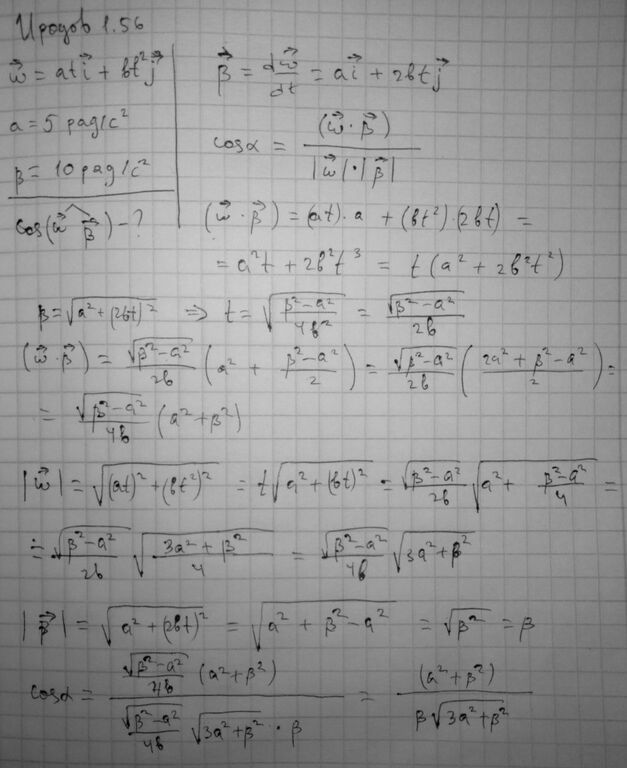 Иродов 1.56
ω⃗ = ati⃗ + bt²j⃗
a = 5 рад/с²
β = 10 рад/с²
cos(ω⃗ ^ β⃗) - ?
β⃗ = dω⃗/dt = ai⃗ + 2btj⃗
cosα = (ω⃗ · β⃗) / |ω⃗|·|β⃗|
(ω⃗ · β⃗) = (at)·a + (bt²)·(2bt) =
= a²t + 2b²t³ = t(a² + 2b²t²)
β = √(a² + (2bt)²) ⇒ t = √((β² - a²)/4b²) = √(β² - a²)/2b
(ω⃗ · β⃗) = √(β² - a²)/2b (a² + (β² - a²)/2) = √(β² - a²)/2b ((2a² + β² - a²)/2) =
= √(β² - a²)/4b (a² + β²)
|ω⃗| = √((at)² + (bt²)²) = t√(a² + (bt)²) = √(β² - a²)/2b √(a² + (β² - a²)/4) =
= √(β² - a²)/2b √((3a² + β²)/4) = √(β² - a²)/4b √(3a² + β²)
|β⃗| = √(a² + (2bt)²) = √(a² + β² - a²) = √(β²) = β
cosα = (√(β² - a²)/4b (a² + β²)) / (√(β² - a²)/4b √(3a² + β²) · β) = (a² + β²) / (β√(3a² + β²))